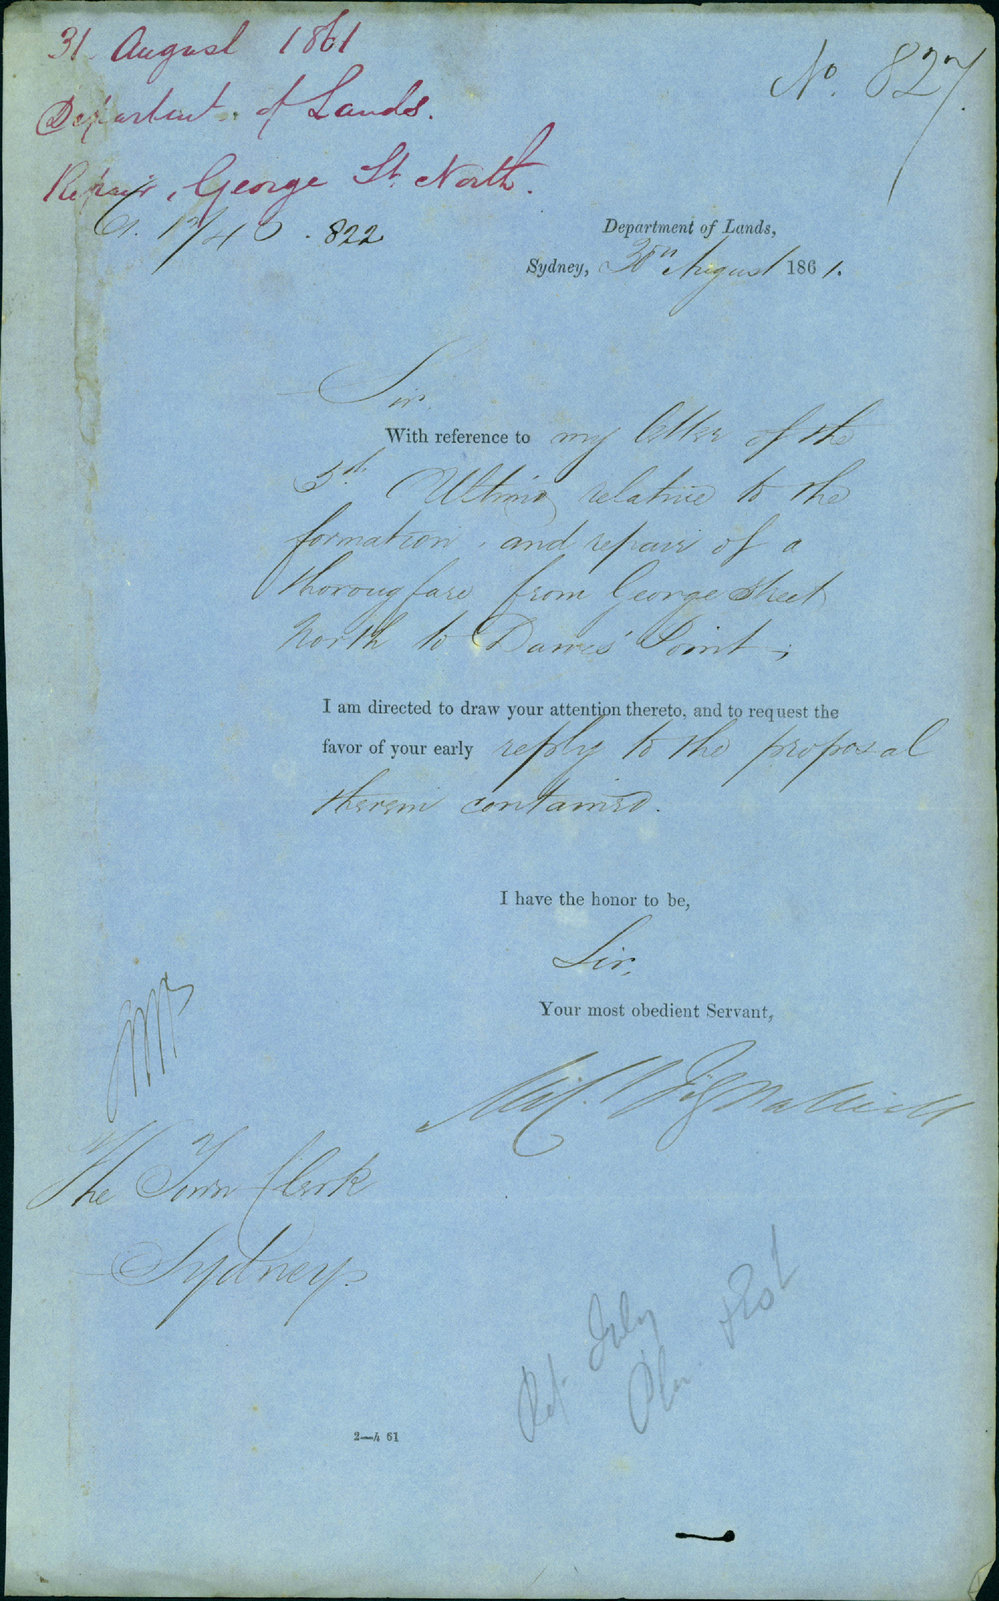 31 August 1861
Department of Lands.
Repair, George St. North.
822
No. 827.
Department of Lands,
Sydney, 30th August 1861.
Sir,
With reference to my letter of the
5th Ultimo, relative to the
formation, and repair of a
thorougfare from George Street
North to Dawes' Point;
I am directed to draw your attention thereto, and to request the
favor of your early reply to the proposal
therein contained.
I have the honor to be,
Sir,
Your most obedient Servant,
Mich. Fitzpatrick
The Town Clerk
Sydney.
July
2—4 61